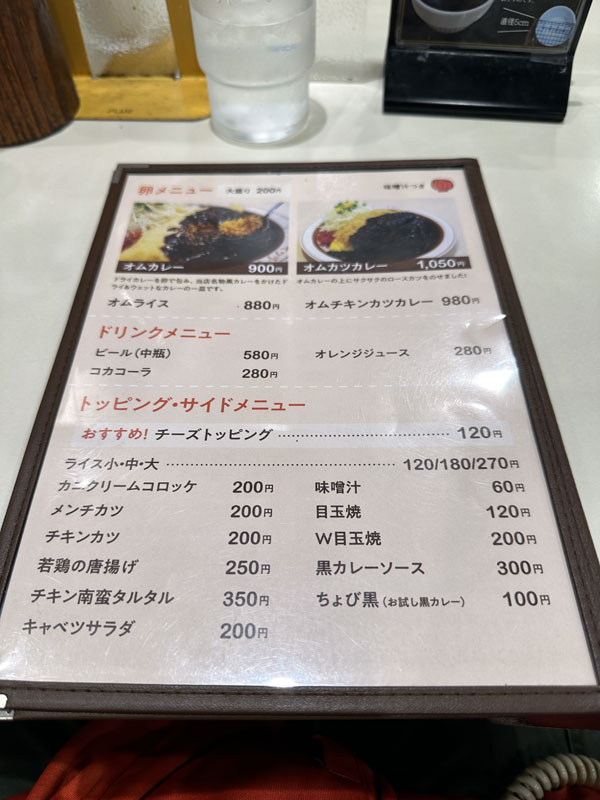 直径5cm
卵メニュー 大盛り 200円 味噌汁つき
オムカレー 900円
オムカツカレー 1,050円
ドライカレーを卵で包み、当店名物黒カレーをかけたド
ライ&ウェットなカレーの一皿です。
オムカレーの上にサクサクのロースカツをのせました!
オムライス 880円
オムチキンカツカレー 980円
ドリンクメニュー
ビール(中瓶) 580円
オレンジジュース 280円
コカコーラ 280円
トッピング・サイドメニュー
おすすめ! チーズトッピング 120円
ライス小・中・大 120/180/270円
カニクリームコロッケ 200円
味噌汁 60円
メンチカツ 200円
目玉焼 120円
チキンカツ 200円
W目玉焼 200円
若鶏の唐揚げ 250円
黒カレーソース 300円
チキン南蛮タルタル 350円
ちょび黒(お試し黒カレー) 100円
キャベツサラダ 200円